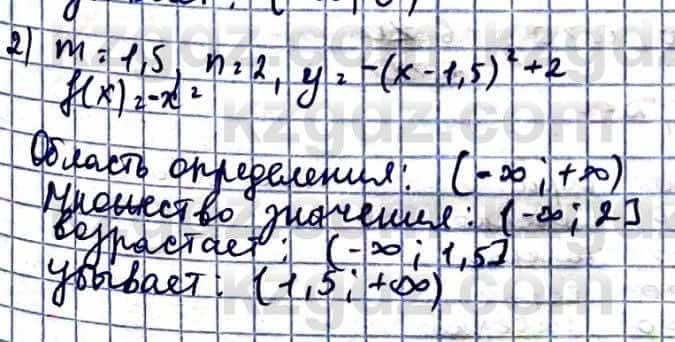 2) m = 1,5, n = 2, y = -(x - 1,5)² + 2
f(x) = -x²
Область определения: (-∞; +∞)
Множество значения: (-∞; 2]
возрастает: (-∞; 1,5]
Убывает: (1,5; +∞)